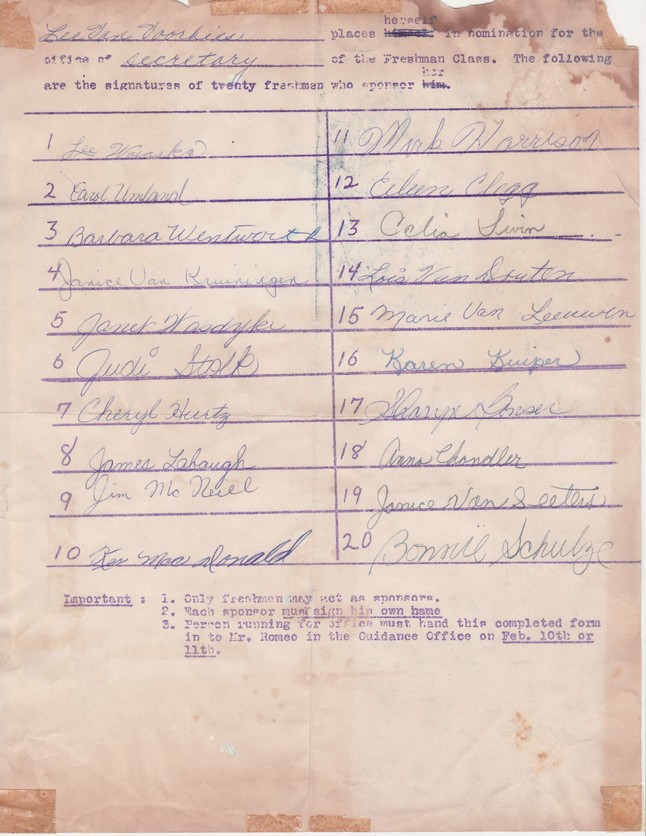 herself
Lee Van Voorhies places himself in nomination for the
office of secretary of the Freshman Class. The following
her
are the signatures of twenty freshmen who sponsor him.
1 Lee
2 Carol Umland
3 Barbara Wentworth
4 Janice Van Kruiningen
5 Janet Wosdyke
6 Judi Stolk
7 Cheryl Hurtz
8 James Labaugh
9 Jim Mc Neill
10 Ken Mac Donald
11 Mark Harrison
12 Eileen Clegg
13 Celia
14 Lois Van Douten
15 Marie Van Leeuwen
16 Karen Kuiper
17 Sharyn
18 Anna Chandler
19 Janice Van Seeters
20 Bonnie Schulze
Important : 1. Only freshmen may act as sponsors.
2. Each sponsor must sign his own hame
3. Person running for office must hand this completed form
in to Mr. Romeo in the Guidance Office on Feb. 10th or
11th.